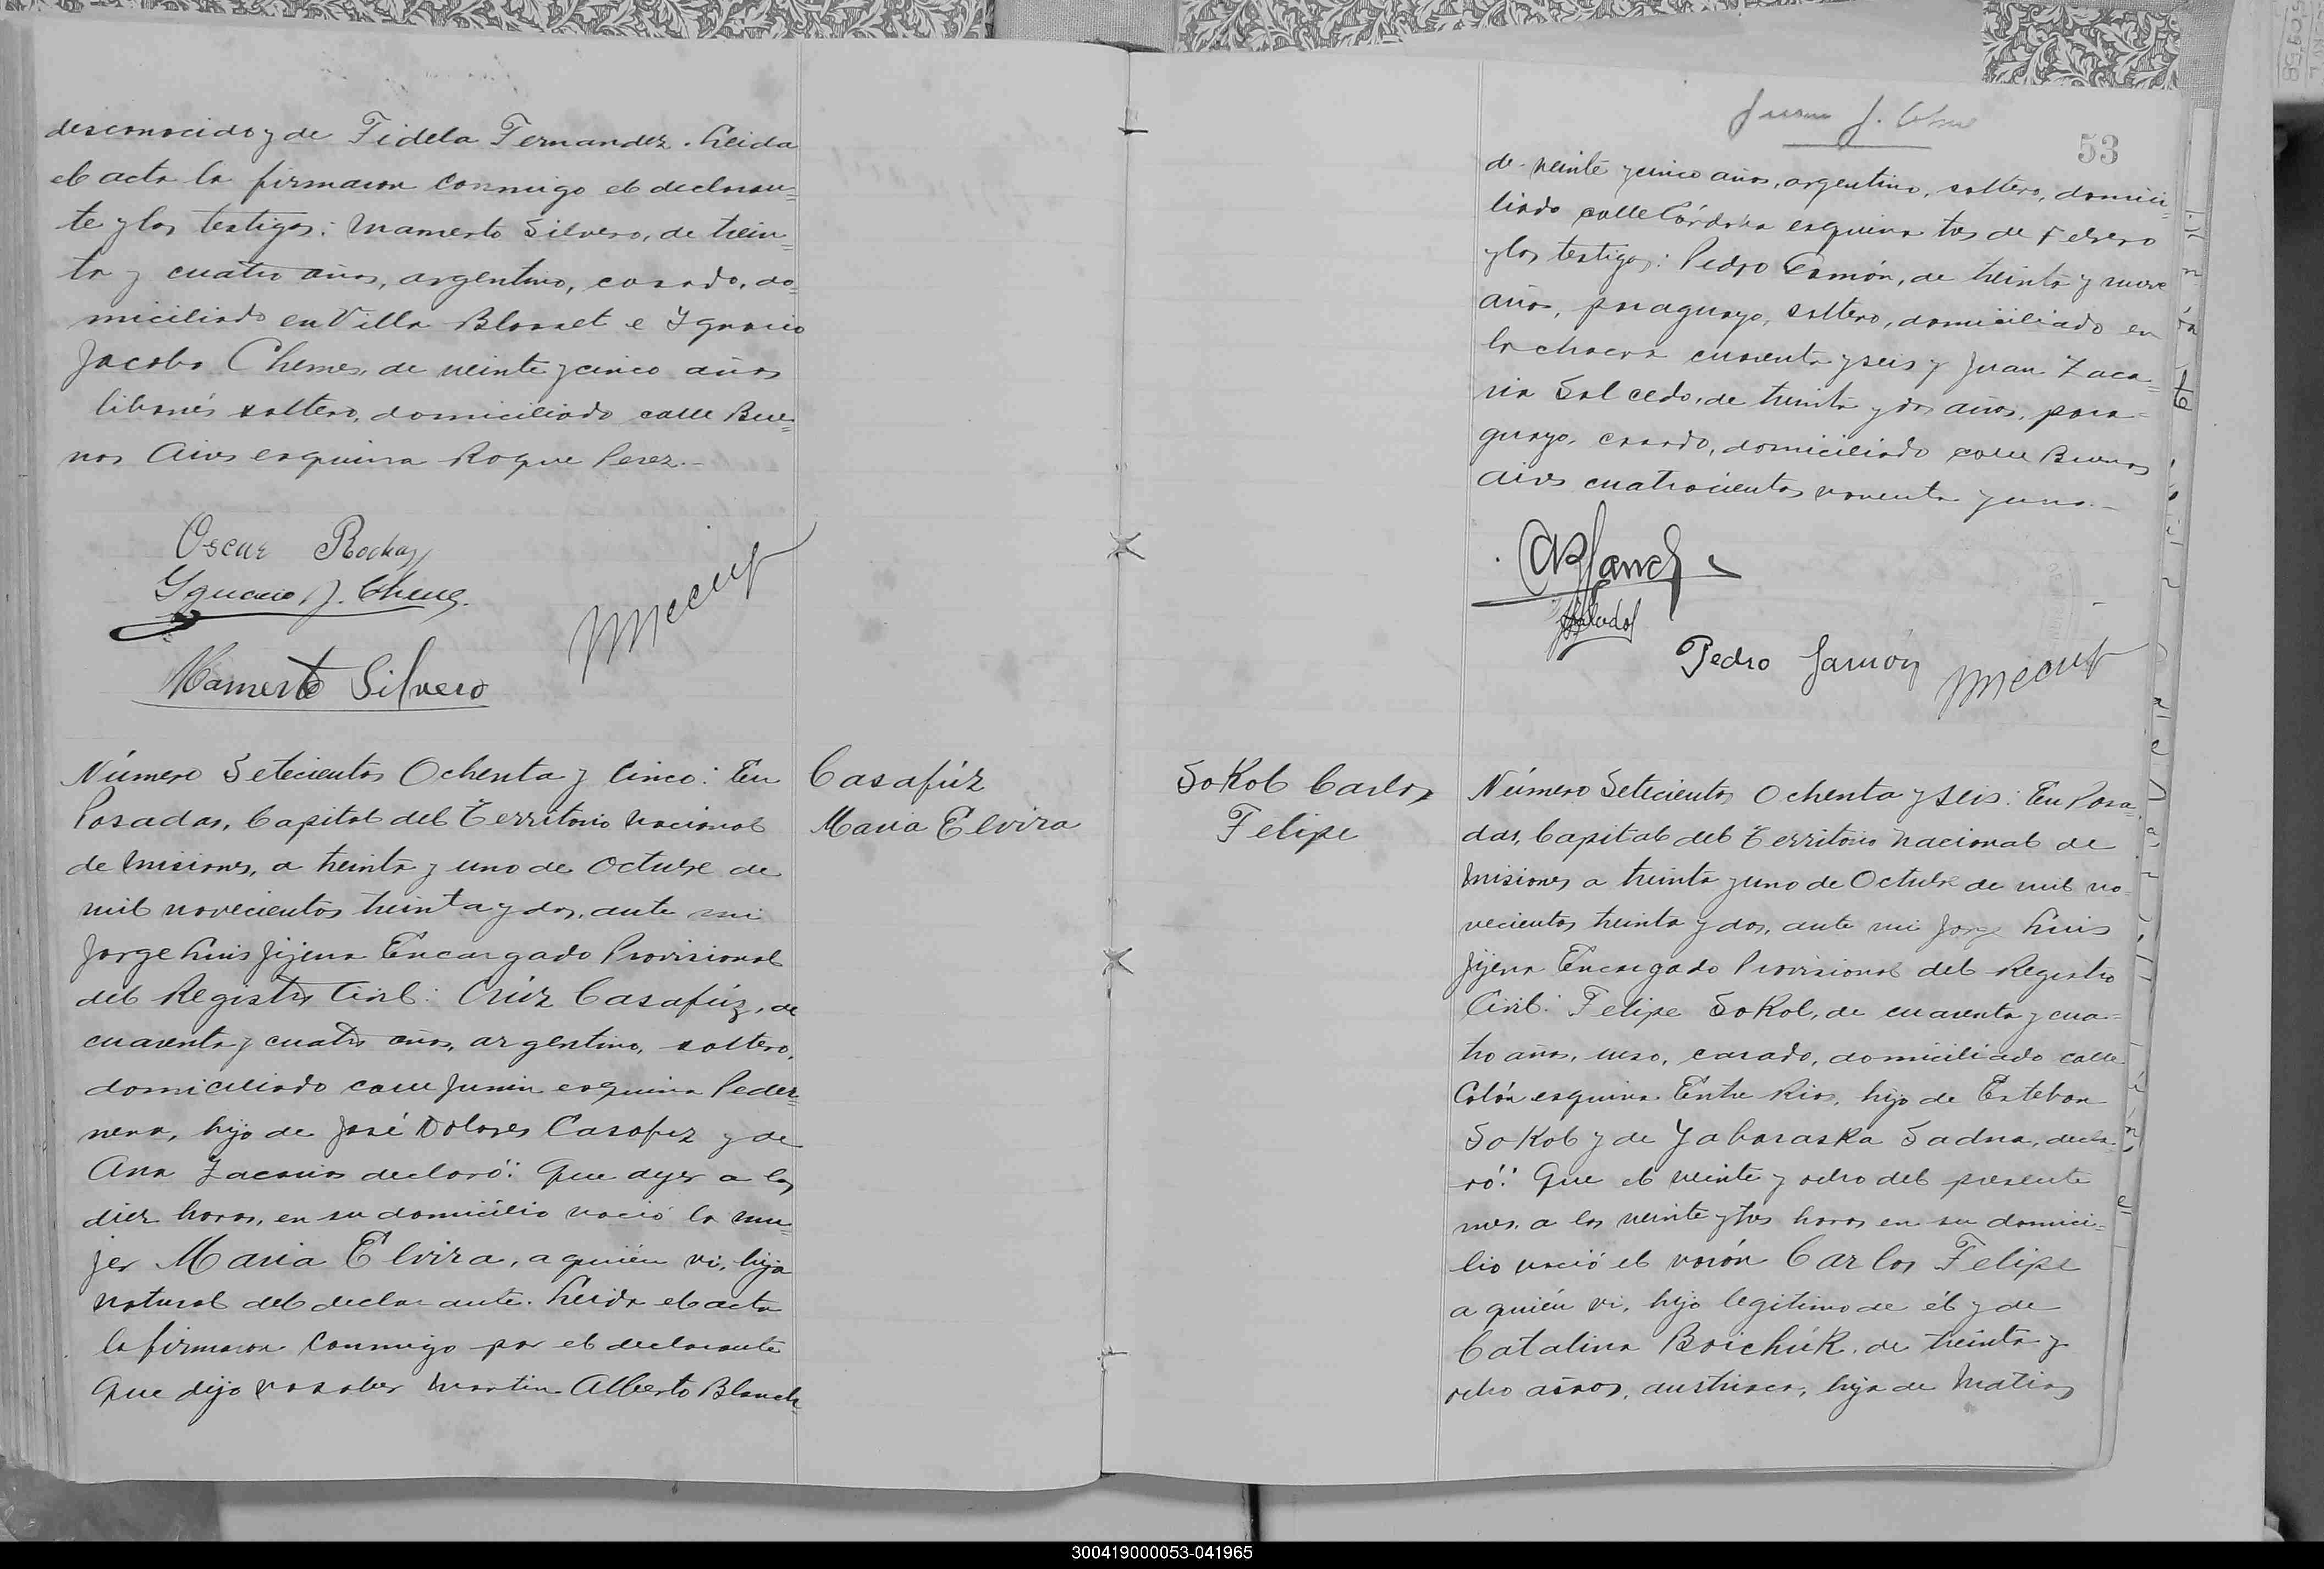 desconocido y de Fidela Fernandez. Leida
el acta la firmaron conmigo el declaran=
te y los testigos: Mamerto Silvero, de trein=
ta y cuatro años, argentino, casado, do=
miciliado en Villa Blosset e Ygnacio
Jacobo Chemes, de veinte y cinco años
libanés soltero, domiciliado calle Bue=
nos Aires esquina Roque Perez.-
Oscar Rochay
Ygnacio J. Cheme
Mamerto Silvero
Número Setecientos Ochenta y Cinco: En
Posadas, Capital del Territorio Nacional
de Misiones, a treinta y uno de Octubre de
mil novecientos treinta y dos, ante mi
Jorge Luis Jijena Encargado Provisional
del Registro Civil: Crúz Casafúz, de
cuarenta y cuatro años, argentino, soltero,
domiciliado calle Junin esquina Peder=
nera, hijo de José Dolores Casafuz y de
Ana Zacarias declaró: Que ayer a las
diez horas, en su domicilio nació la mu=
jer Maria Elvira, a quién vi, hija
natural del declarante. Leida el acta
la firmaron conmigo por el declarante
que dijo no saber Martin Alberto Blanch
Casafúz
Maria Elvira
53
de veinte y cinco años, argentino, soltero, domici=
liado calle Córdoba esquina tres de Febrero
y los testigos: Pedro Gamón, de treinta y nueve
años, paraguayo, soltero, domiciliado en
la chacra cuarenta y seis y Juan Zaca=
ria Salcedo, de treinta y dos años, para=
guayo, casado, domiciliado calle Buenos
Aires cuatrocientos noventa y uno.-
ABlanch
Pedro Gamón
Sokol Carlos
Felipe
Número Setecientos Ochenta y seis: En Posa=
das, Capital del Territorio Nacional de
Misiones a treinta y uno de Octubre de mil no=
vecientos treinta y dos, ante mi Jorge Luis
Jijena Encargado Provisional del Registro
Civil: Felipe Sokol, de cuarenta y cua=
tro años, ruso, casado, domiciliado calle
Colón esquina Entre Rios, hijo de Esteban
Sokol y de Yabaraska Sadna, decla=
ró: Que el veinte y ocho del presente
mes, a las veinte y tres horas en su domici=
lio nació el varón Carlos Felipe
a quién vi, hijo legitimo de él y de
Catalina Boichúk, de treinta y
ocho años, austriaca, hija de Matias
300419000053-041965